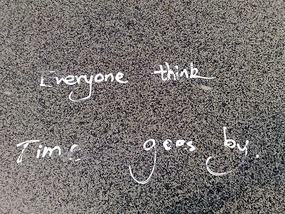 Everyone think
Time goes by.